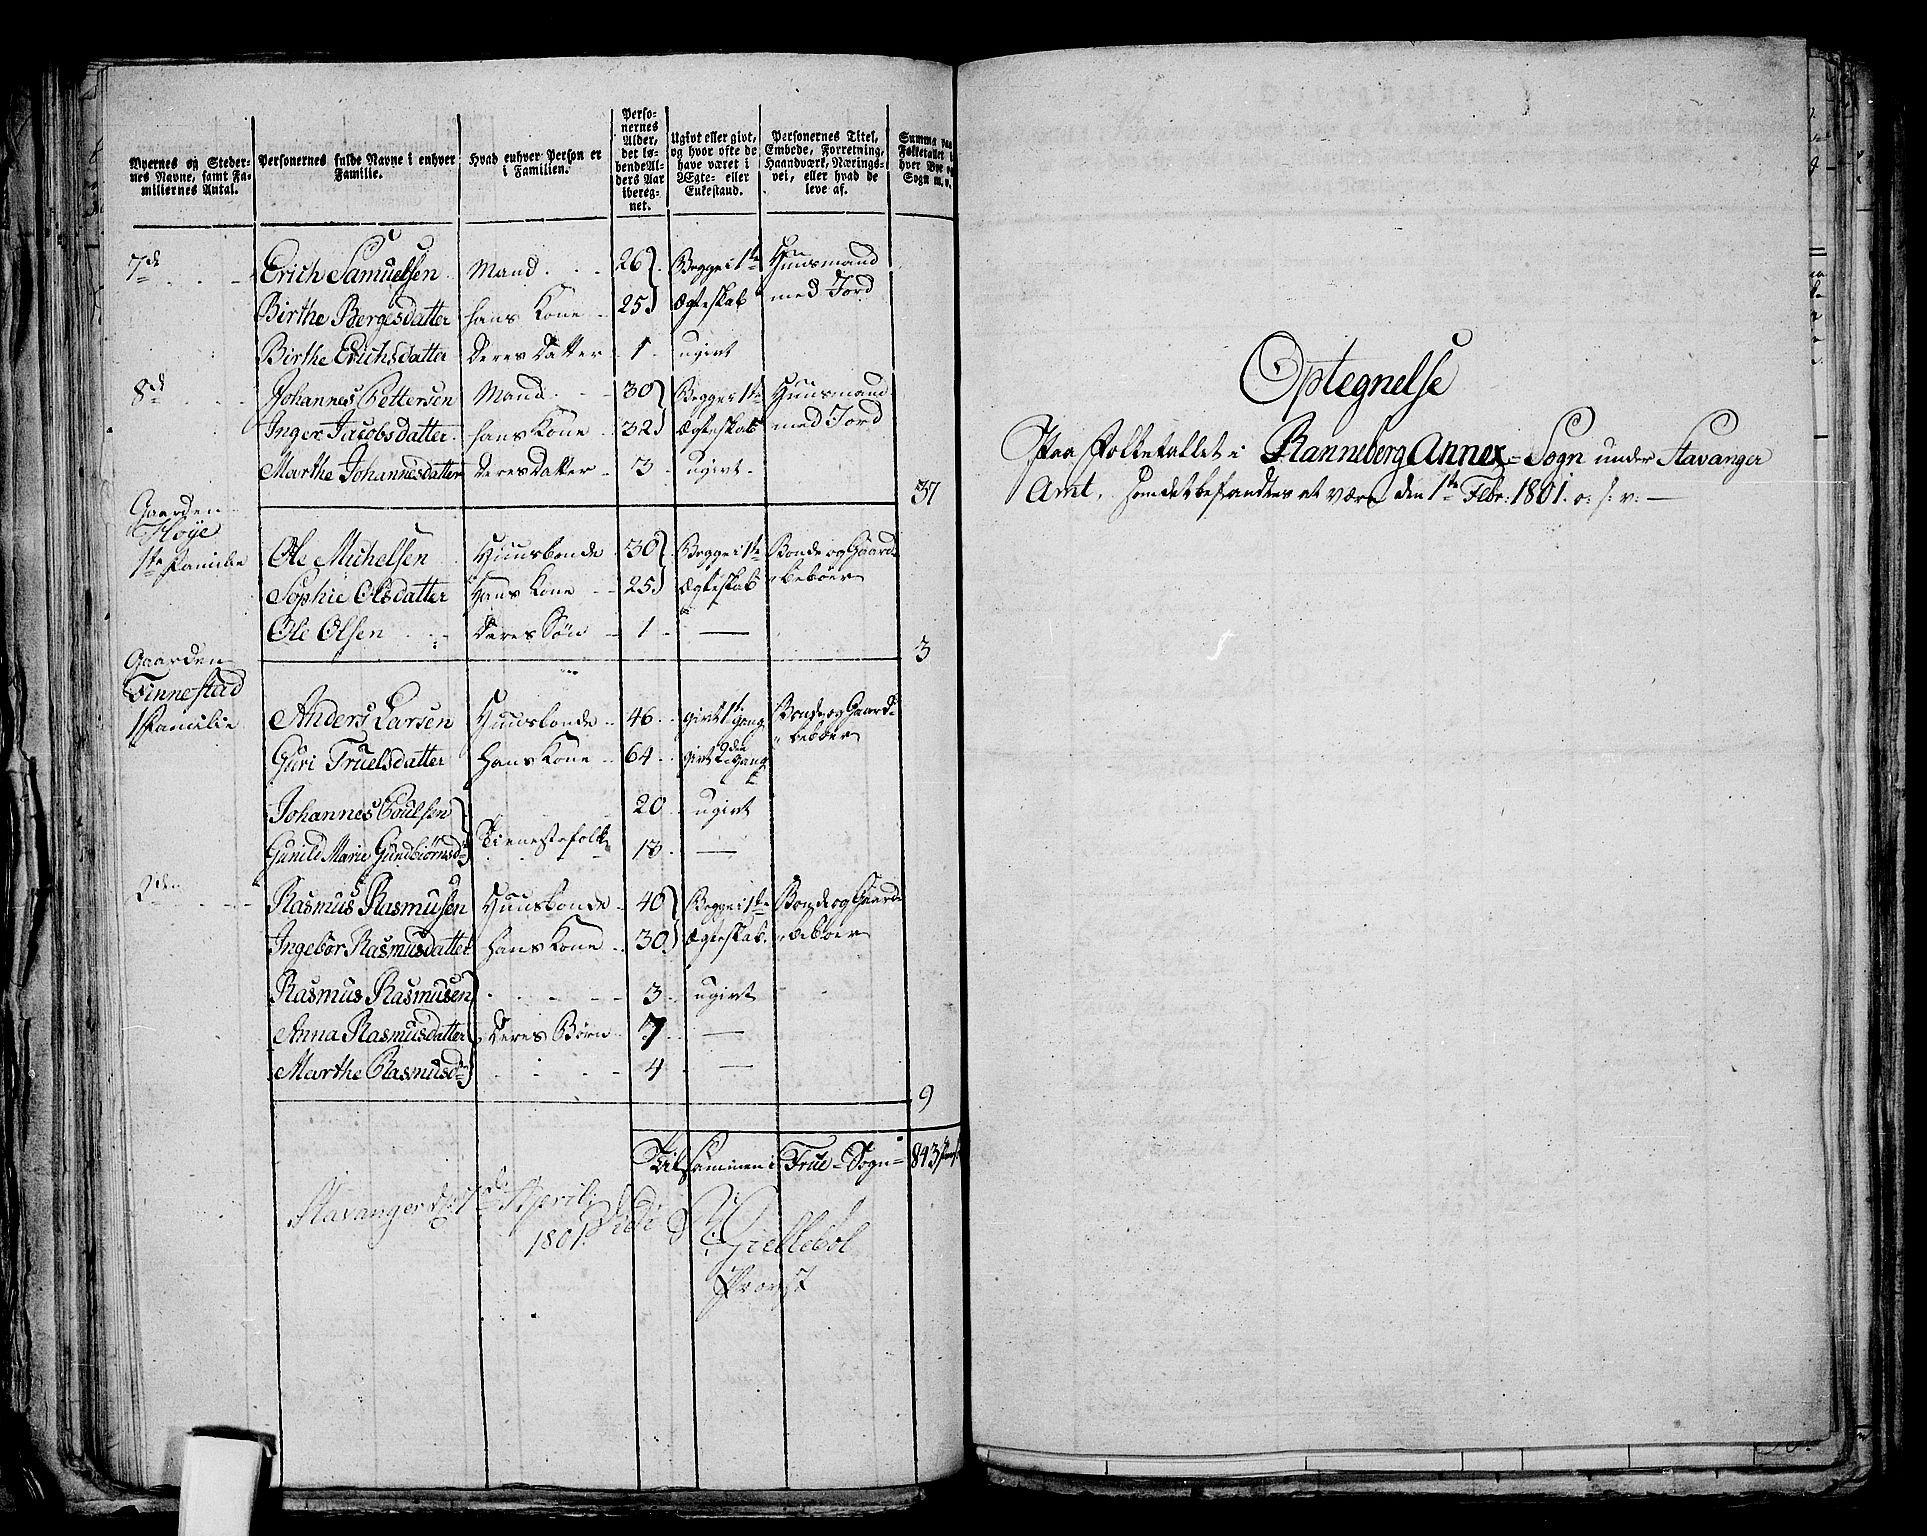 Byernes og Stedernes Navne, samt Familiernes Antal.
Personernes fulde Navne i enhver Familie.
Hvad enhver Person er i Familien.
Personernes Alder, det løbende Alders Aar iberegnet.
Ugivt eller givt, og hvor ofte de have været i Ægte- eller Enkestand.
Personernes Titel, Embede, Forretning, Haandværk, Næringsvei, eller hvad de leve af.
Summa paa Folketallet i hver Bye og Sogn m. v.
7de Erich Samuelsen Mand 26 Begge i 1ste Huusmand
Birthe Bergesdatter hans Kone 25 Ægteskab med Jord
Birthe Erichsdatter Deres Datter 1 ugivt
8de Johannes Pettersen Mand 30 Begge i 1ste Huusmand
Inger Jacobsdatter hans Kone 32 Ægteskab med Jord
Marthe Johannesdatter Deres Datter 3 ugivt
37
Gaarden
Høye
1ste Familie Ole Michelsen Huusbonde 30 Begge i 1ste Bonde og Gaard
Sophie Olsdatter Hans Kone 25 Ægteskab beboer
Ole Olsen Deres Søn 1 —
3
Gaarden
Finnestad
1 Familie Anders Larsen Huusbonde 46 givt 1ste gang Bonde og Gaard
beboer
Guri Truelsdatter Hans Kone 64 givt 2den gang
Johannes Poulsen 20 ugivt
Tienestefolk
Gunild Marie Gundbiørnsdr 13 —
2den Rasmus Rasmusen Huusbonde 40 Begge i 1ste Bonde og Gaard
Ingebor Rasmusdatter hans Kone 30 Ægteskab beboer
Rasmus Rasmusen 3 ugivt
Anna Rasmusdatter Deres Børn 7 —
Marthe Rasmusdr 4 —
9
Tilsammen i True-Sogn 843
Stavanger d. 17de Aprili
1801. Vidi
Giellebøl
Provst
Optegnelse
Paa Folketallet i Ranneberg Annex-Sogn under Stavanger
Amt, som det befandtes at være den 1ste Febr: 1801. o: s: v: —